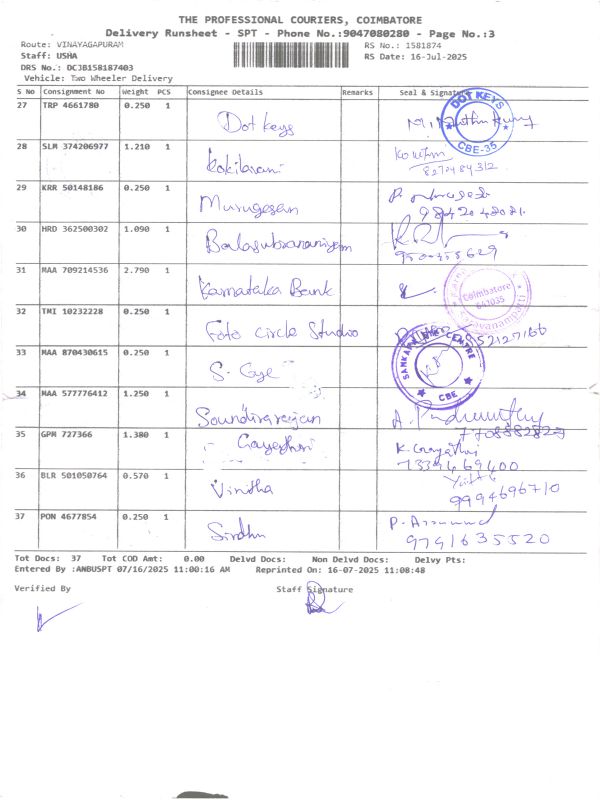 THE PROFESSIONAL COURIERS, COIMBATORE
Delivery Runsheet - SPT - Phone No.:9047080280 - Page No.:3
Route: VINAYAGAPURAM
RS No.: 1581874
Staff: USHA
RS Date: 16-Jul-2025
DRS No.: DCJB158187403
Vehicle: Two Wheeler Delivery
S No Consignment No Weight PCS Consignee Details Remarks Seal & Signature
27 TRP 4661780 0.250 1 Dot keys
DOT KEYS CBE-35
28 SLM 374206977 1.210 1 Kokilavani
29 KRR 50148186 0.250 1 Murugesan
30 HRD 362500302 1.090 1 Balasubramaniyam
31 MAA 709214536 2.790 1 Karnataka Bank
Coimbatore 641035 Saravanampatti
32 TMI 10232228 0.250 1 Foto Circle Studio
33 MAA 870430615 0.250 1 S. Eye
SANKARA EYE CENTRE CBE
34 MAA 577776412 1.250 1 Soundirarajan
7708882829
35 GPM 727366 1.380 1 Gayathri
K. Gayathri
7339469400
36 BLR 501050764 0.570 1 Vinitha
9994696710
37 PON 4677854 0.250 1 Sindhu
9791635520
Tot Docs: 37 Tot COD Amt: 0.00 Delvd Docs: Non Delvd Docs: Delvy Pts:
Entered By :ANBUSPT 07/16/2025 11:00:16 AM Reprinted On: 16-07-2025 11:08:48
Verified By Staff Signature